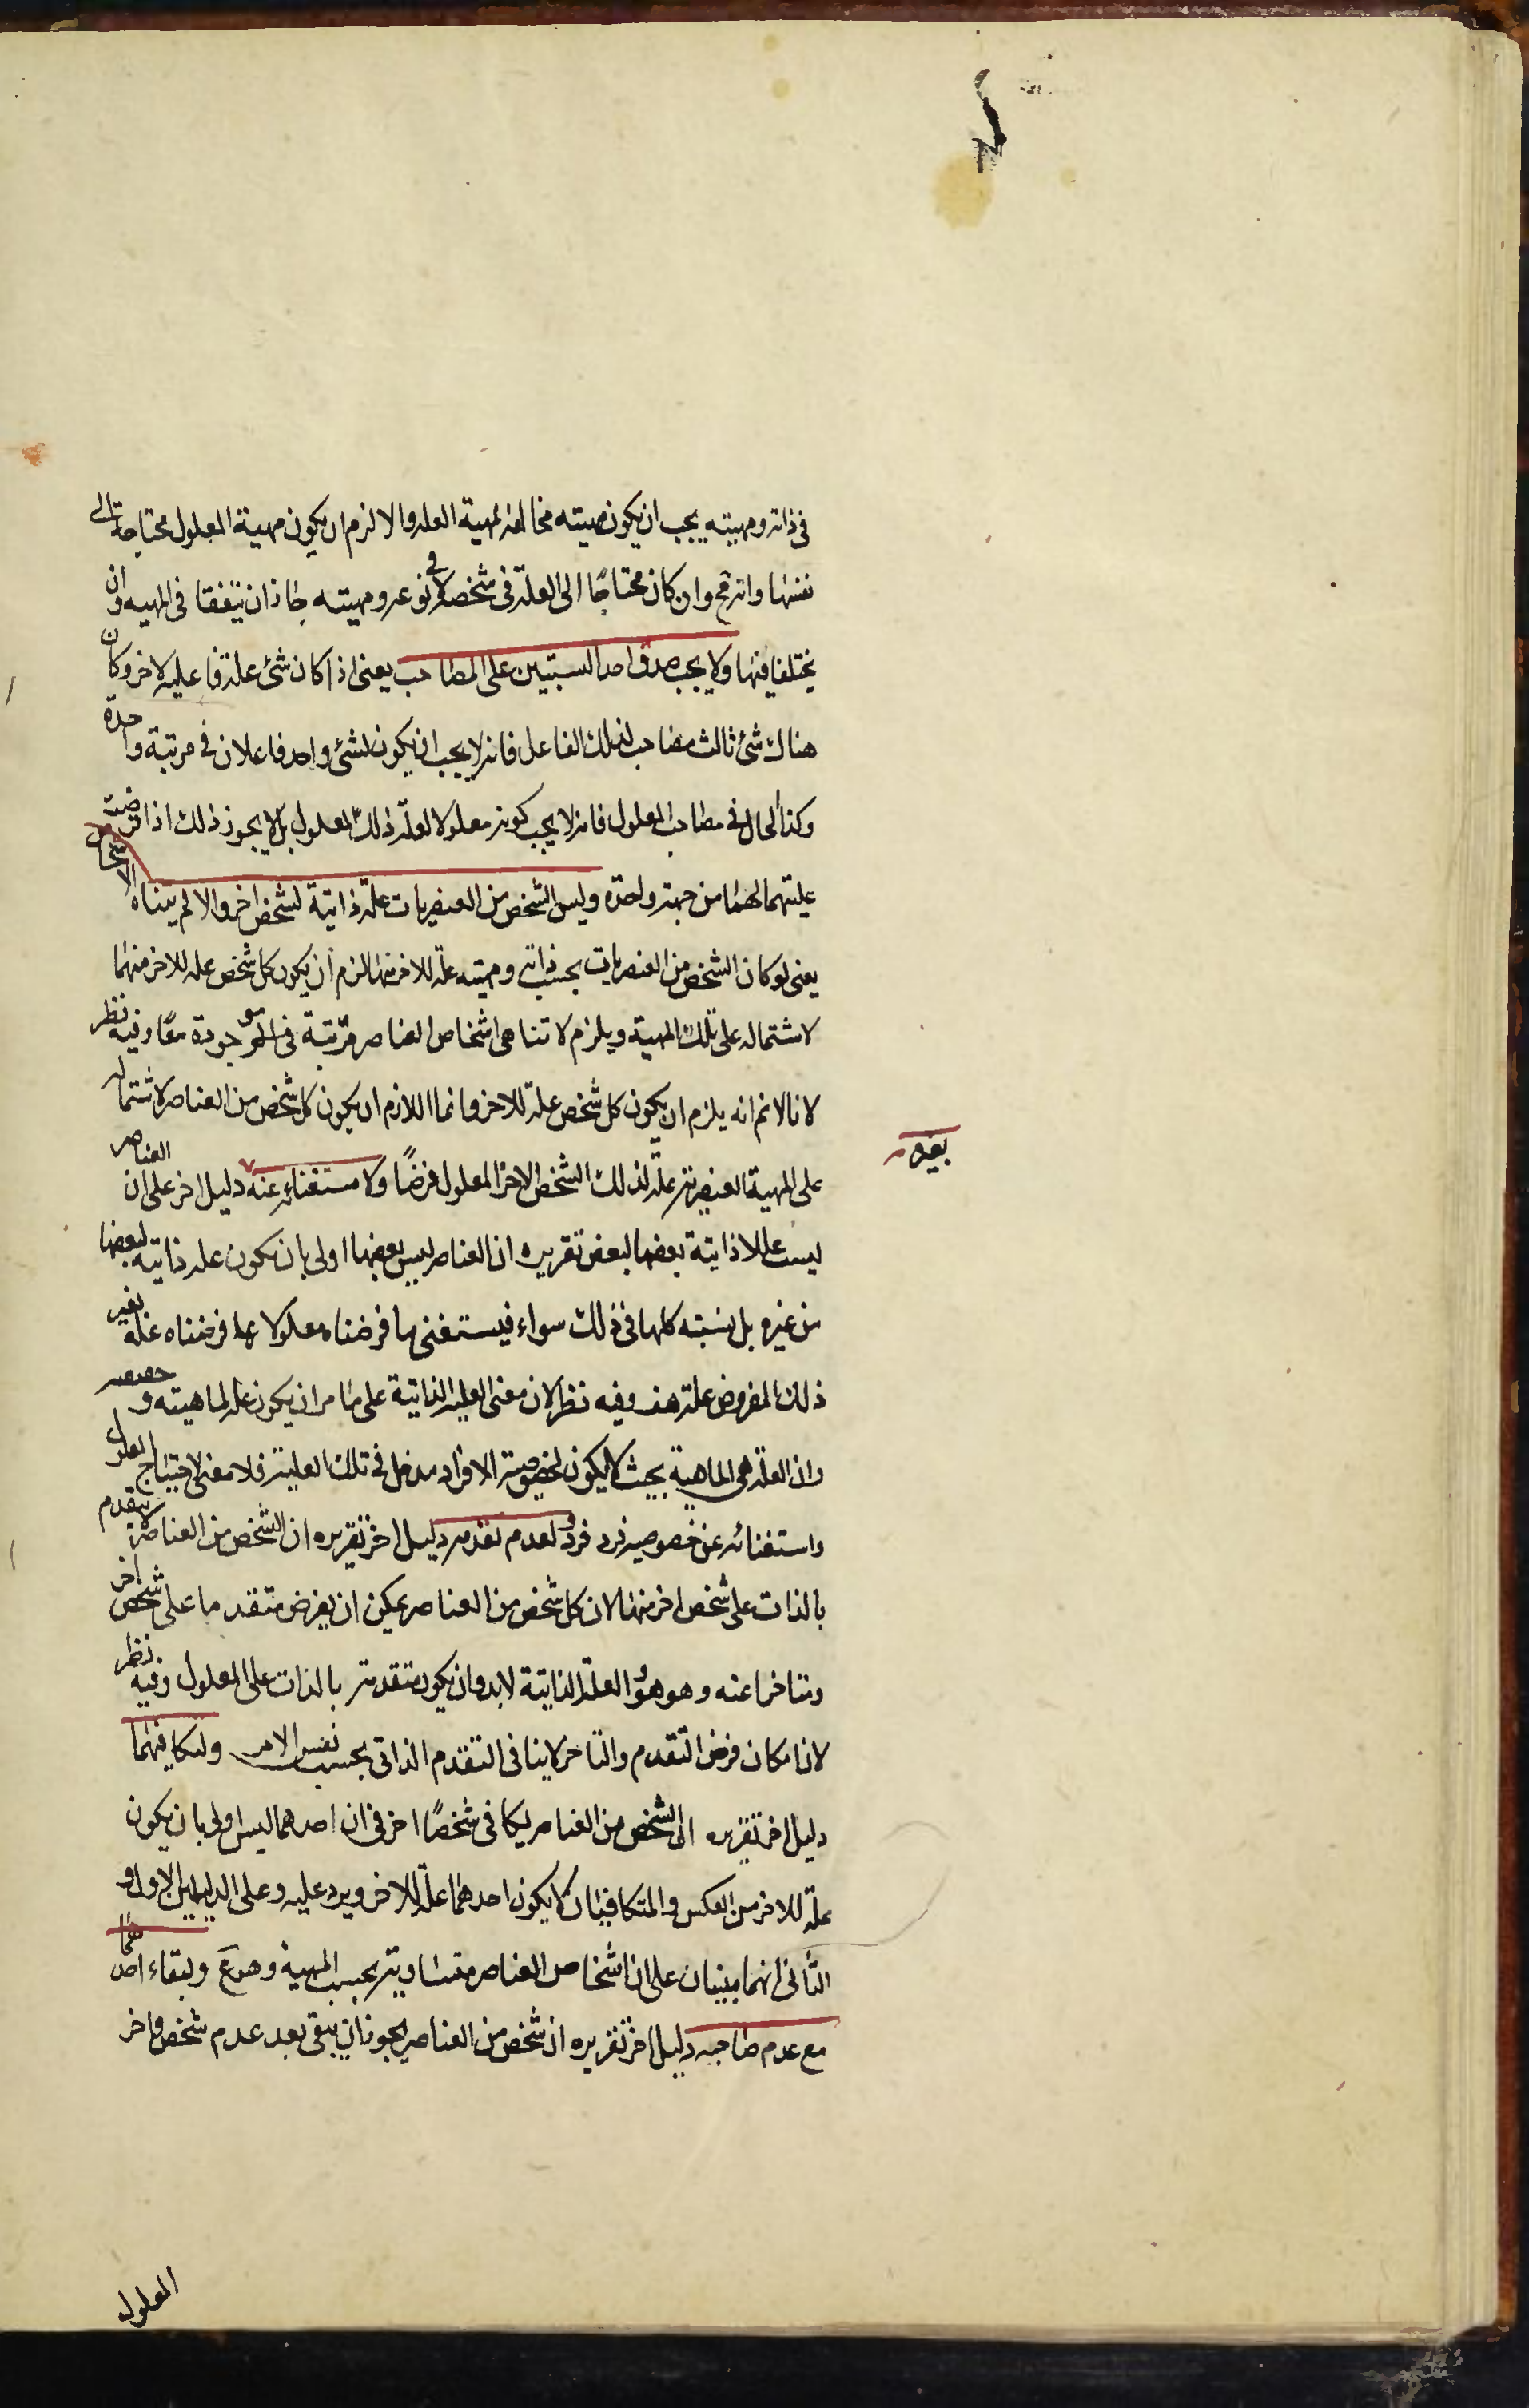 فى ذاته ومهيته يجب ان يكون مهيته مخالفة لمهية العلة والا لزم ان يكون مهية المعلول محتاجة الى
نفسها وانه مح وان كان محتاجًا الى العلة فى شخصه لا فى نوعه ومهيته جاز ان يتفقا فى المهيه وان
يختلفا فيها ولا يجب صدق احد النسبتين على المصاحب يعنى اذا كان شئ علة فاعليه لاخر وكان
هناك شئ ثالث مصاحب لذلك الفاعل فانه لا يجب ان يكون لشئ واحد فاعلان فى مرتبة واحدة
وكذا الحال فى مصاحب المعلول فانه لا يجب كونه معلولا لعلة ذلك المعلول بل لا يجوز ذلك اذا فرضت
عليتهما لهما من جهة واحدة وليس الشخص من العنصريات علة ذاتية لشخص اخر والا لم يتناه الاشخاص
يعنى لو كان الشخص من العنصريات بحسب ذاته ومهيته علة للاخر منها لزم ان يكون كل شخص علة للاخر منها
لاشتماله على تلك المهية ويلزم لا تناهى اشخاص العناصر مترتبة فى الموجودة معًا وفيه نظر
لانا لا نم انه يلزم ان يكون كل شخص علة للاخر وانما اللازم ان يكون كل شخص من العناصر لاشتماله
على المهية العنصرية علة لذلك الشخص الاخر المعلول فرضًا ولاستغنائه عنه دليل اخر على ان العناصر
بغيره
ليست عللا ذاتية بعضها لبعض تقريره ان العناصر ليس بعضها اولى بان يكون علة ذاتية لبعضها
من غيره بل نسبته كلها فى ذلك سواء فيستغنى ما فرضناه معلولا عما فرضناه علة بغير
ذلك المفروض علة هف وفيه نظر لان معنى العلية الذاتية على ما مر ان يكون علة لماهيته و
وان العلة هى الماهية بحيث لا يكون لخصوصية الافراد مدخل فى تلك العلية فلا معنى لاحتياج المعلول
واستغنائه عن خصوصيه فرد فرد ولعدم تقدمه دليل اخر تقريره ان الشخص من العناصر لا يتقدم
بالذات على شخص اخر منها لان كل شخص من العناصر يمكن ان يفرض متقدما على شخص اخر
ومتاخرا عنه وهو هو والعلة الذاتية لابد وان يكون متقدمة بالذات على المعلول وفيه نظر
لان امكان فرض التقدم والتاخر لا ينافى التقدم الذاتى بحسب نفس الامر ولتكافيهما
دليل اخر تقريره ان الشخص من العناصر يكافى شخصًا اخر فى ان احدهما ليس اولى بان يكون
علة للاخر من العكس والمتكافيان لا يكون احدهما علة للاخر ويرد عليه وعلى الدليلين الاول و
الثانى انهما مبنيان على ان اشخاص العناصر متساوية بحسب المهية وهو مم ولبقاء احدهما
مع عدم صاحبه دليل اخر تقريره ان شخص من العناصر يجوز ان يبقى بعد عدم شخص اخر
المعلول